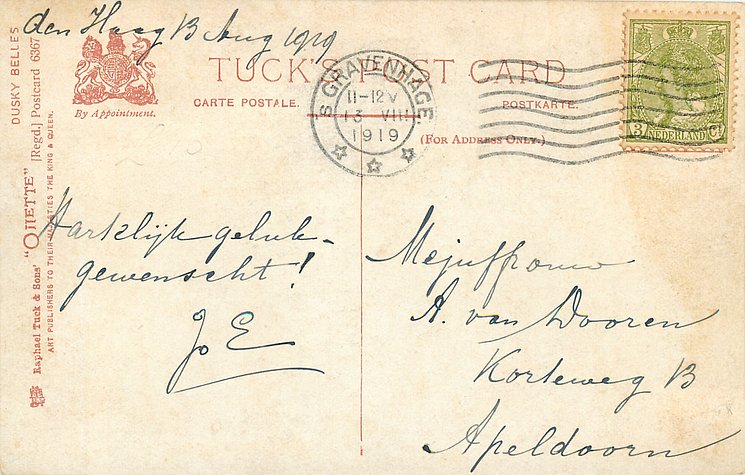 den Haag 13 Aug 1919
TUCK'S POST CARD
CARTE POSTALE.
POSTKARTE.
(FOR ADDRESS ONLY.)
By Appointment.
'S GRAVENHAGE.
11-12 V
13 VIII
1919
3 NEDERLAND Ct
DUSKY BELLES
"OILETTE" [Regd.] Postcard 6367
Raphael Tuck & Sons'
ART PUBLISHERS TO THEIR MAJESTIES THE KING & QUEEN.
Hartelijk geluk-
gewenscht!
Jo E
Mejuffrouw
A. van Dooren
Korteweg 13
Apeldoorn